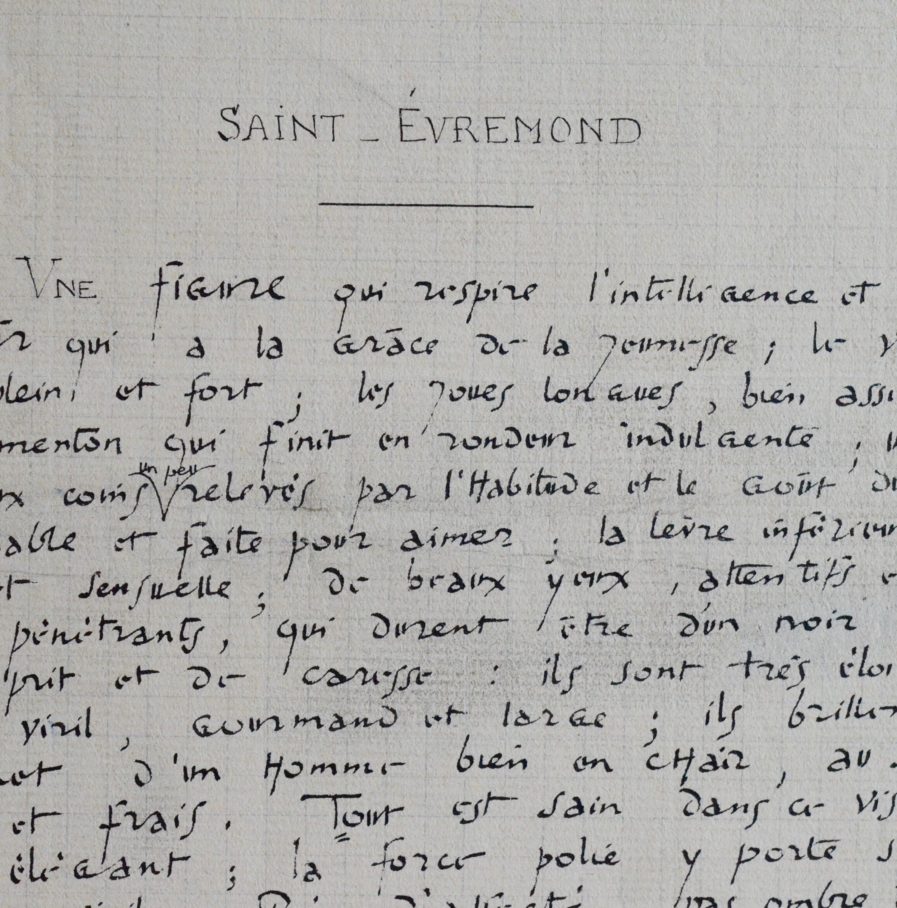 SAINT - ÉVREMOND
UNE figure qui respire l'intelligence et
qui a la grâce de la jeunesse ; le
plein et fort ; les joues longues, bien assi
menton qui finit en rondeur indulgente ;
ux coins un peu relevés par l'Habitude et le goût du
able et faite pour aimer ; la lèvre inférieur
et sensuelle ; de beaux yeux, attentifs e
pénétrants, qui durent être d'un noir
prit et de caresse : ils sont très éloi
viril, gourmand et large ; ils briller
et d'un Homme bien en cHair, au
et frais. Tout est sain dans ce vis
élégant ; la force polie y porte s
ombre